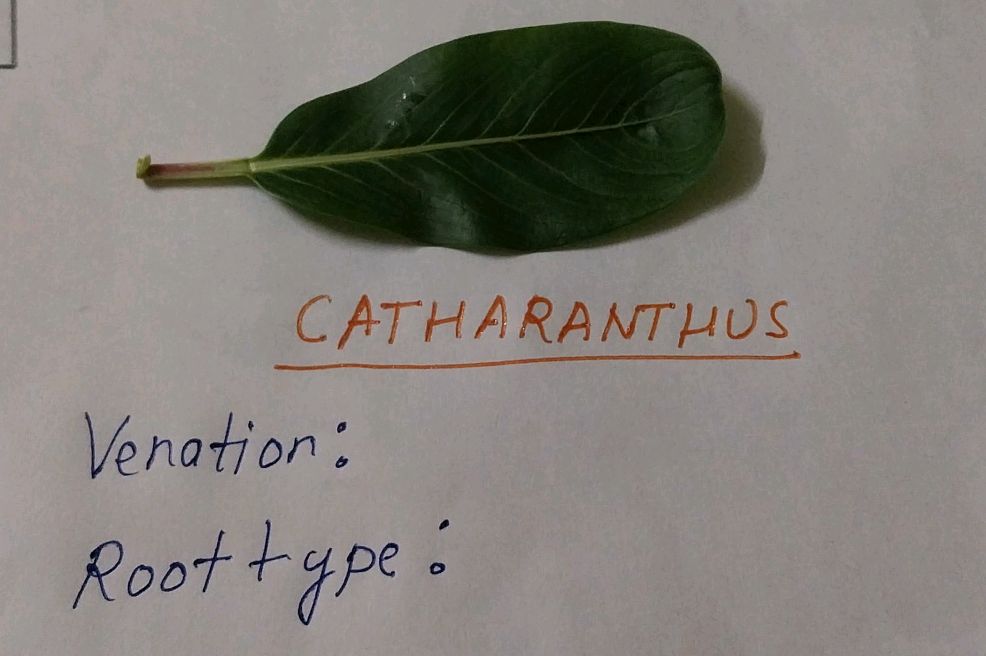 CATHARANTHUS
Venation:
Root type: